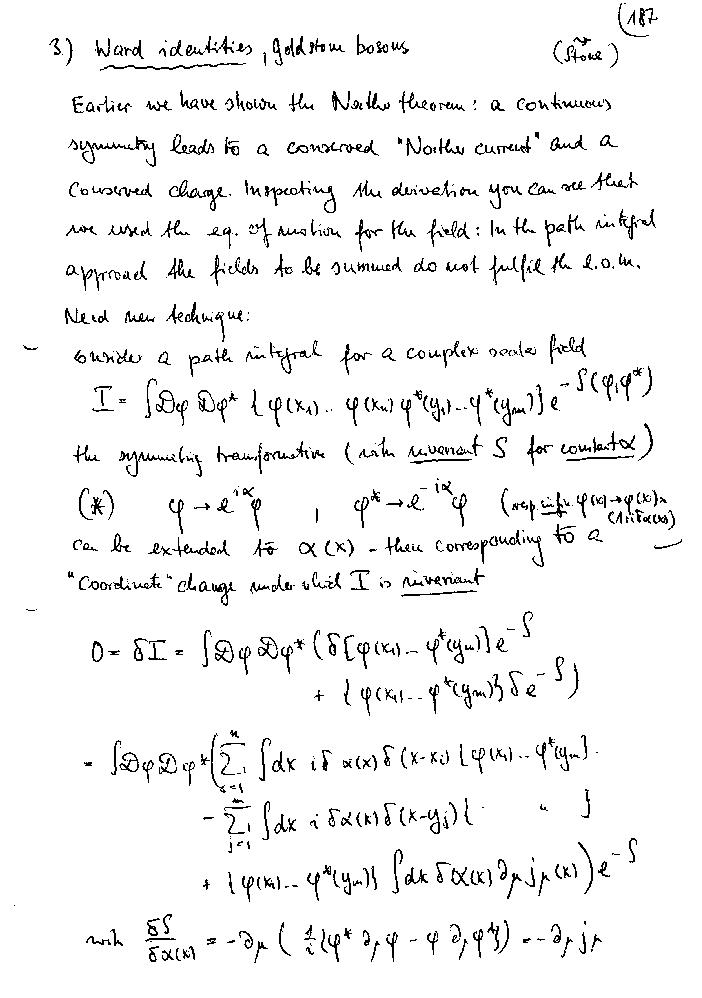 (187
3.) Ward identities, goldstone bosons (Stone)
Earlier we have shown the Noether theorem: a continuous
symmetry leads to a conserved "Noether current" and a
conserved charge. Inspecting the derivation you can see that
we used the eq. of motion for the field: In the path integral
approach the fields to be summed do not fulfil the e.o.m.
Need new technique:
onsider a path integral for a complex scalar field
I = ∫Dφ Dφ* {φ(x₁)..φ(xₙ)φ*(y₁)..φ*(yₘ)} e^{-S(φ,φ*)}
the symmetry transformation (with invariant S for constant α)
(*) φ → e^{iα}φ , φ* → e^{-iα}φ (resp infin. φ(x)→φ(x)×
(1+iδα(x))
can be extended to α(x) - then corresponding to a
"Coordinate" change under which I is invariant
0 = δI = ∫Dφ Dφ* (δ[φ(x₁)...φ*(yₘ)] e^{-S}
+ {φ(x₁)...φ*(yₘ)} δe^{-S})
= ∫Dφ Dφ* (∑_{i=1}^{n} ∫dx iδα(x) δ(x-xᵢ) {φ(x₁)...φ*(yₘ)}
- ∑_{j=1}^{m} ∫dx iδα(x) δ(x-yⱼ) { " }
+ {φ(x₁)...φ*(yₘ)} ∫dx δα(x) ∂_μ j_μ(x)) e^{-S}
with δS/δα(x) = -∂_μ ( 1/i {φ* ∂_μ φ - φ ∂_μ φ*}) = -∂_μ j_μ